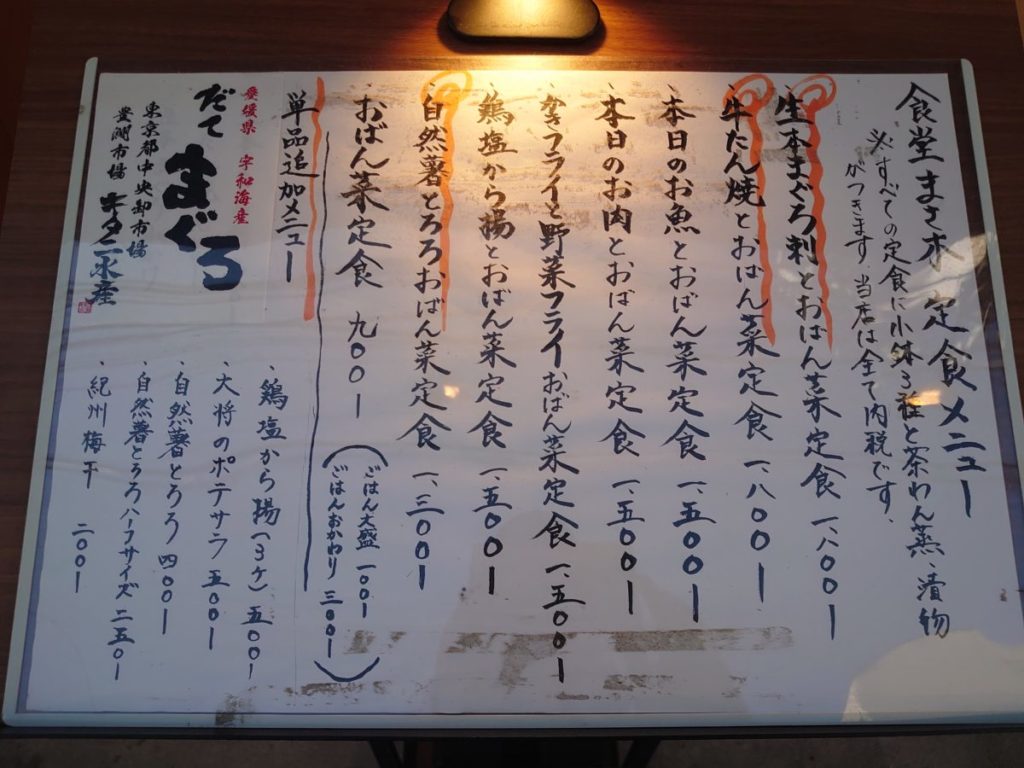 食堂まさ木 定食メニュー
※すべての定食に小鉢3種と茶わん蒸、漬物
がつきます。当店は全て内税です。
、生本まぐろ刺とおばん菜定食 一、八〇〇ー
、牛たん焼とおばん菜定食 一、八〇〇ー
、本日のお魚とおばん菜定食 一、五〇〇ー
、本日のお肉とおばん菜定食 一、五〇〇ー
、かきフライと野菜フライおばん菜定食 一、五〇〇ー
、鶏塩から揚とおばん菜定食 一、五〇〇ー
、自然薯とろろおばん菜定食 一、三〇〇ー
おばん菜定食 九〇〇ー
(ごはん大盛 一〇〇ー
ごはんおかわり 三〇〇ー)
単品追加メニュー
、鶏塩から揚(3ケ) 五〇〇ー
、大将のポテサラ 五〇〇ー
、自然薯とろろ 四〇〇ー
、自然薯とろろハーフサイズ 二五〇ー
、紀州梅干 二〇〇ー
愛媛県 宇和海産
だてまぐろ
東京都中央卸市場
豊洲市場 キタニ水産